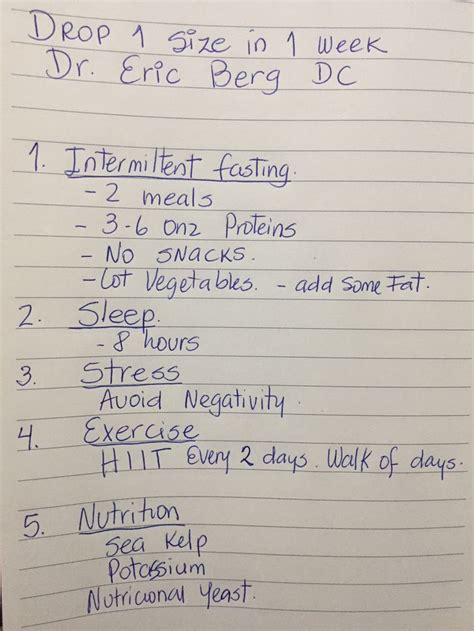 DROP 1 Size in 1 Week
Dr. Eric Berg DC
1. Intermiltent fasting.
- 2 meals
- 3-6 onz Proteins
- No SNACKS.
- Lot Vegetables. - add Some Fat.
2. Sleep.
- 8 hours
3. Stress
Avoid Negativity.
4. Exercise
HIIT Every 2 days. Walk of days.
5. Nutrition
Sea Kelp
Potassium
Nutricional Yeast.